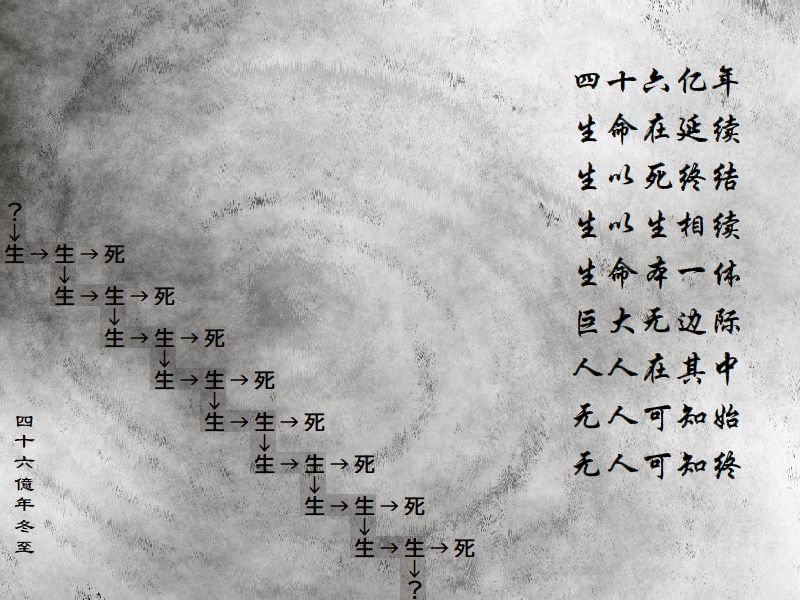 四十六亿年
生命在延续
生以死终结
生以生相续
生命本一体
巨大无边际
人人在其中
无人可知始
无人可知终
?
↓
生→生→死
↓
生→生→死
↓
生→生→死
↓
生→生→死
↓
生→生→死
↓
生→生→死
↓
生→生→死
↓
生→生→死
↓
?
四十六億年冬至